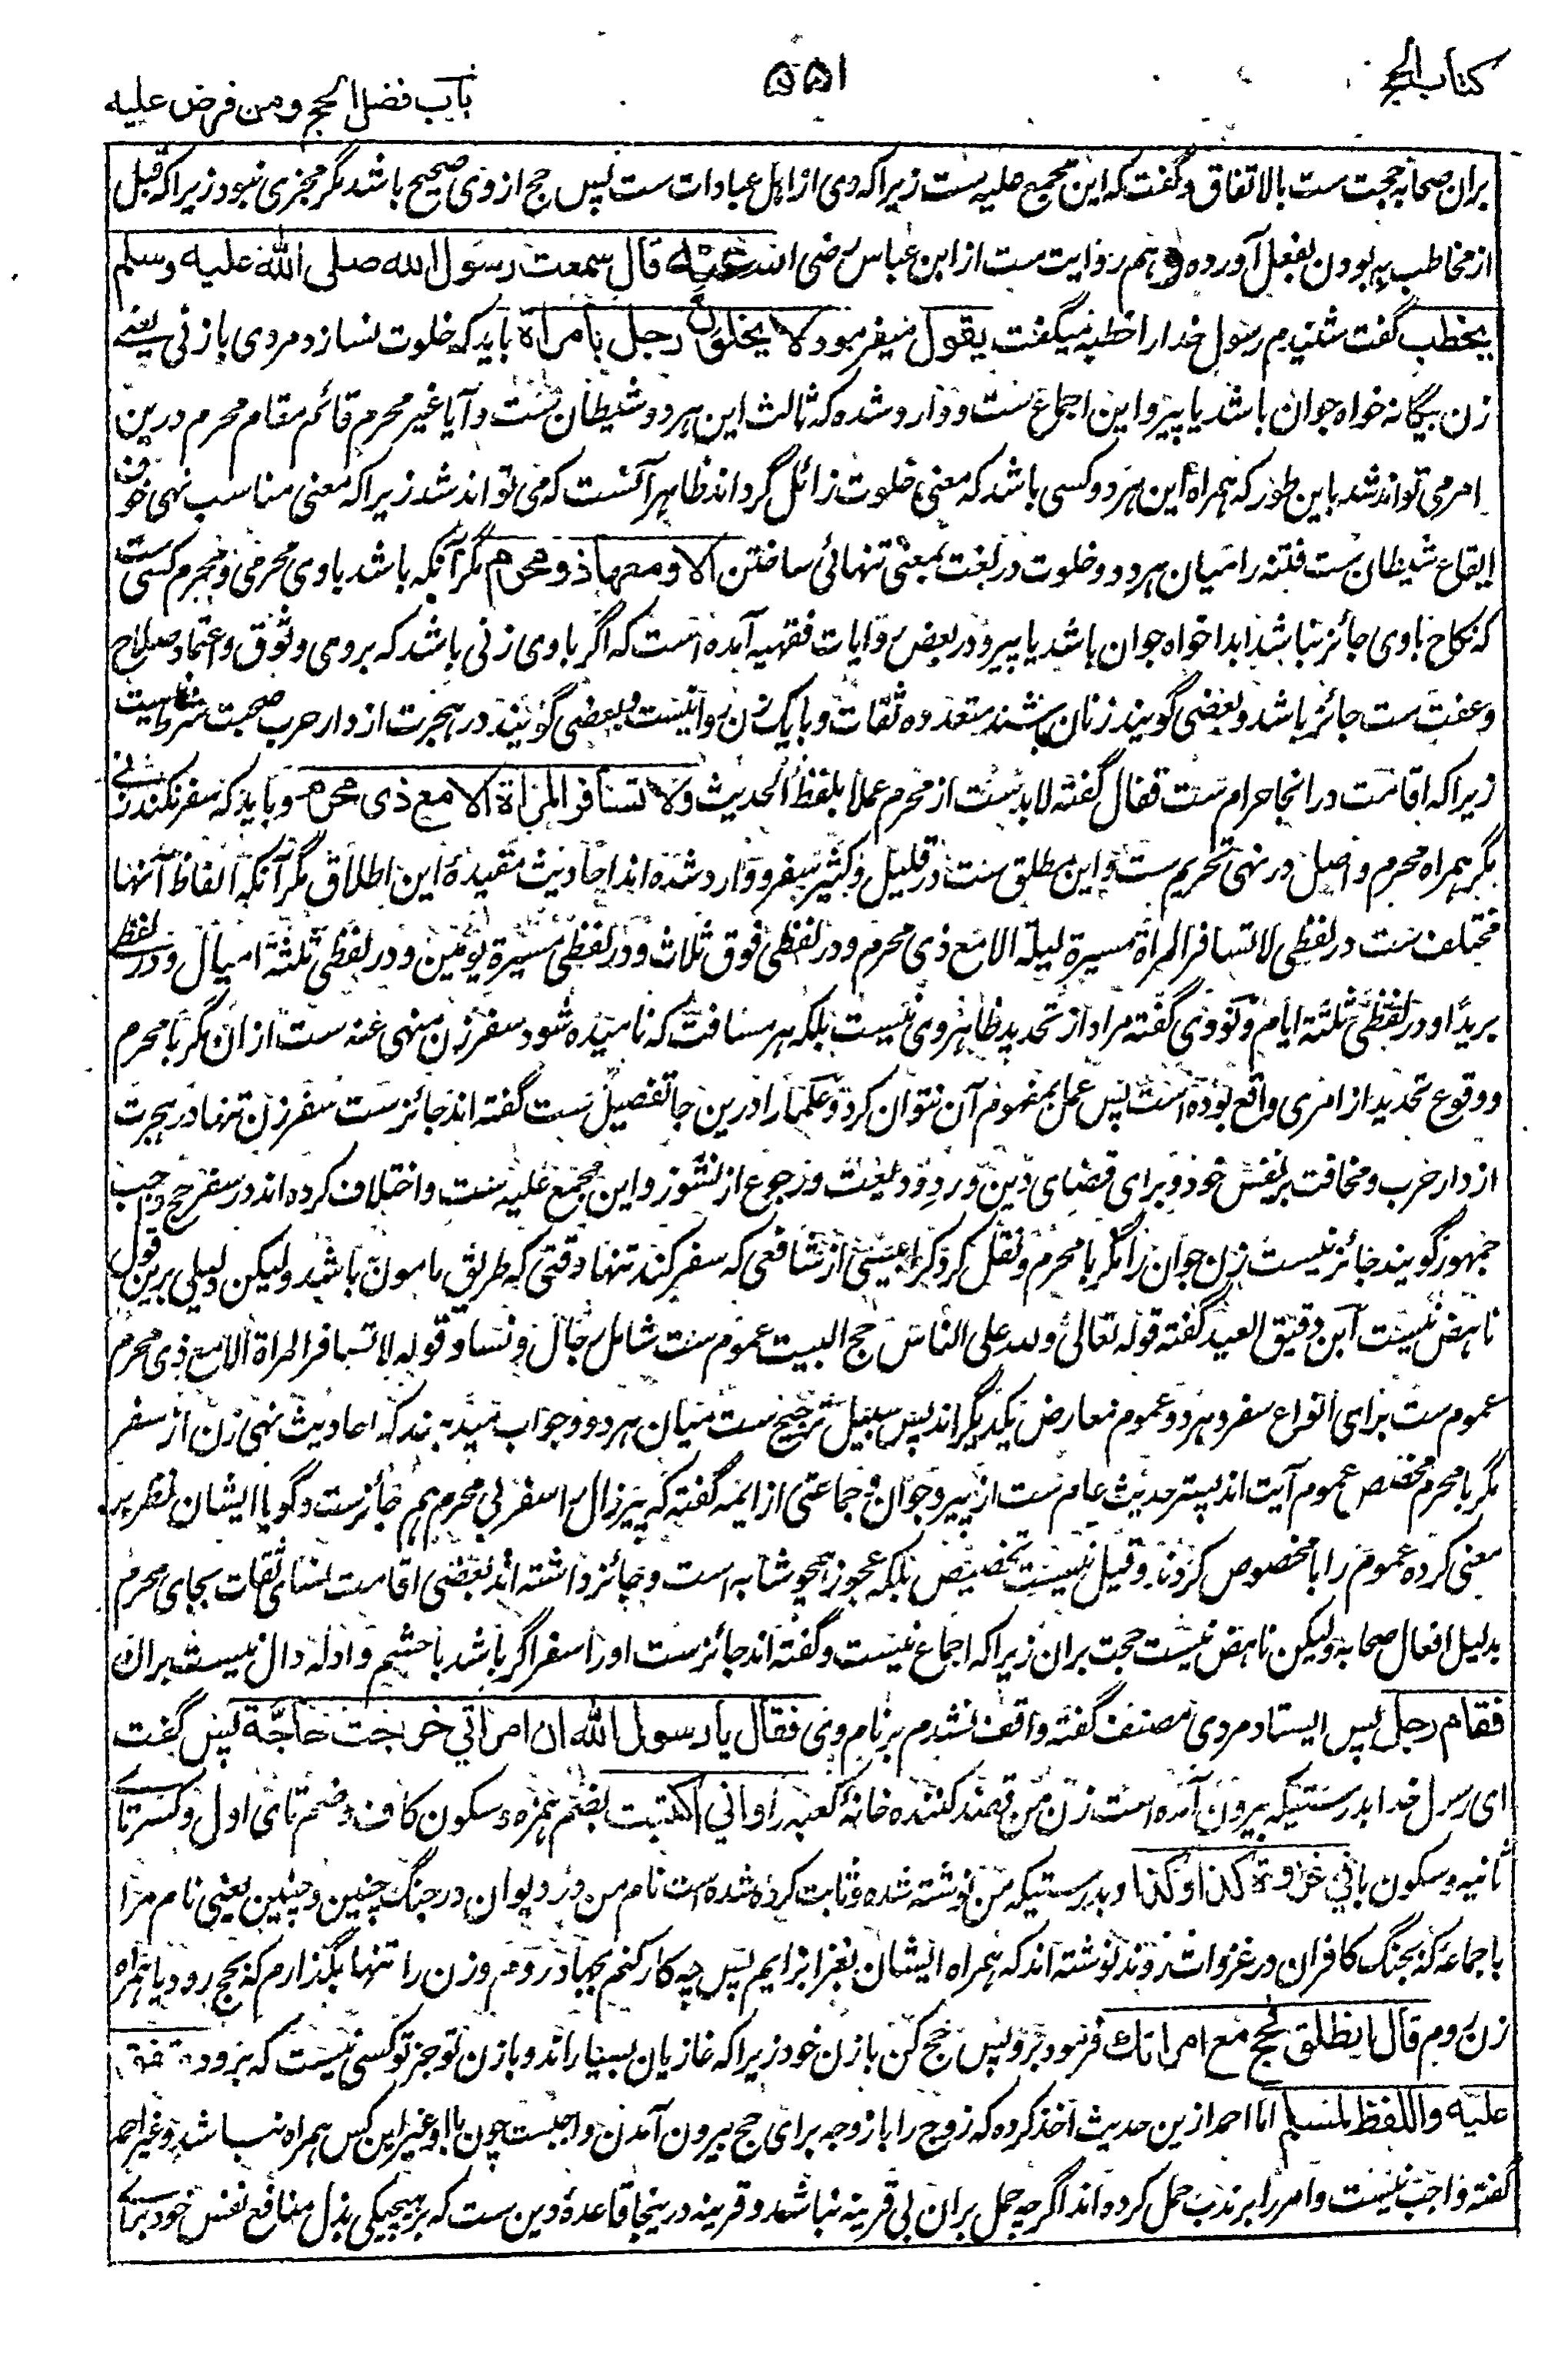 کتاب الحج
۵۵۱
باب فضل الحج ومن فرض علیه
بران صحابه حجت ست بالاتفاق و گفت که این مجمع علیه ست زیراکه وی از اهل عبادات ست پس حج از وی صحیح باشد مگر مجزی نبود زیراکه قبل
از مخاطب به بودن بفعل آورده و هم روایت ست از ابن عباس رضی الله عنه قال سمعت رسول الله صلی الله علیه وسلم
یخطب گفت شنیدم رسول خدا را خطبه میگفت یقول میفرمود لا یخلون رجل بامرأة باید که خلوت نسازد مردی بازنی یعنے
زن بیگانه خواه جوان باشد یا پیر و این اجماع ست و وارد شده که ثالث این هر دو شیطان ست و آیا غیر محرم قائم مقام محرم درین
امر می تواند شد باین طور که همراه این هر دو کسی باشد که معنی خلوت زائل گرداند ظاهر آنست که می تواند شد زیراکه معنی مناسب نهی خوف
ایقاع شیطان ست فتنه را میان هر دو و خلوت در لغت بمعنی تنهائی ساختن الا ومعها ذو محرم مگر آنکه باشد باوی محرمی و محرم کسی ست
که نکاح باوی جائز نباشد ابدا خواه جوان باشد یا پیر و در بعض روایات فقهیه آمده است که اگر باوی زنی باشد که بروی وثوق و اعتماد صلاح
و عفت ست جائز باشد و بعضی گویند زنان باشند متعدده ثقات و بایک زن روا نیست و بعضی گویند در هجرت از دار حرب صحبت شرط نیست
زیراکه اقامت در انجا حرام ست قفال گفته لا بدست از محرم عملا بلفظ الحدیث ولا تسافر المرأة الا مع ذی محرم و باید که سفر نکند زنی
مگر همراه محرم و اصل در نهی تحریم ست و این مطلق ست در قلیل و کثیر سفر و وارد شده اند احادیث مقیدهٔ این اطلاق مگر آنکه الفاظ آنها
مختلف ست در لفظی لا تسافر المرأة مسیرة لیلة الا مع ذی محرم و در لفظی فوق ثلاث و در لفظی مسیرة یومین و در لفظی ثلثة امیال و در لفظے
بریدا و در لفظی ثلثة ایام و نووی گفته مراد از تحدید ظاهر وی نیست بلکه هر مسافت که نامیده شود سفر زن منهی عنه ست از ان مگر با محرم
و وقوع تحدید از امری واقع بوده است پس عمل بمفهوم آن نتوان کرد و علما را درین جا تفصیل ست گفته اند جائز ست سفر زن تنها در هجرت
از دار حرب و مخافت بر نفس خود و برای قضای دین و رد ودیعت و رجوع از نشوز و این مجمع علیه ست و اختلاف کرده اند در سفر حج واجب
جمهور گویند جائز نیست زن جوان را مگر با محرم و نقل کرد کرابیسی از شافعی که سفر کند تنها وقتی که طریق مامون باشد ولیکن دلیلی برین قول
ناهض نیست ابن دقیق العید گفته قوله تعالی ولله علی الناس حج البیت عموم ست شامل رجال و نسا و قوله لا تسافر المرأة الا مع ذی محرم
عموم ست برای انواع سفر و هر دو عموم معارض یکدیگر اند پس سبیل ترجیح ست میان هر دو و جواب میدهند که احادیث نهی زن از سفر
مگر با محرم مخصص عموم آیت اند پستر حدیث عام ست از پیر و جوان و جماعتی از ایمه گفته که پیرزال را سفر بی محرم هم جائزست و گویا ایشان نظر بر
معنی کرده عموم را با مخصوص کردند و قیل نیست تخصیص بلکه عجوز همچو شابه است و جائز داشته اند بعضی اقامت نسای ثقات بجای محرم
بدلیل افعال صحابه ولیکن ناهض نیست حجت بران زیراکه اجماع نیست و گفته اند جائزست او را سفر اگر باشد با حشم و ادله دال نیست بران
فقام رجل پس ایستاد مردی مصنف گفته واقف نشدم بر نام وی فقال یا رسول الله ان امراتي خرجت حاجّة پس گفت
ای رسول خدا بدرستیکه بیرون آمده است زن من قصد کننده خانهٔ کعبه را واني اکتتبت بضم همزه و سکون کاف و ضم تای اول و کسر تاے
ثانیه و سکون با في غزوة کذا وکذا و بدرستیکه من نوشته شده و ثابت کرده شده است نام من در دیوان در جنگ چنین و چنین یعنی نام مرا
با جماعه که بجنگ کافران در غزوات روند نوشته اند که همراه ایشان بغزا برایم پس چه کار کنم بجهاد روم و زن را تنها بگذارم که بحج رود یا همراه
زن روم قال انطلق فحج مع امراتك فرمود برو پس حج کن با زن خود زیراکه غازیان بسیار اند و با زن تو جز تو کسی نیست که برود متفق
علیه واللفظ لمسلم اما احمد ازین حدیث اخذ کرده که زوج را با زوجه برای حج بیرون آمدن واجبست چون با او غیر این کس همراه نباشد و غیر احمد
گفته واجب نیست و امر را بر ندب حمل کرده اند اگرچه حمل بران بی قرینه نباشد و قرینه درینجا قاعدهٔ دین ست که بر هیچیکی بذل منافع نفس خود